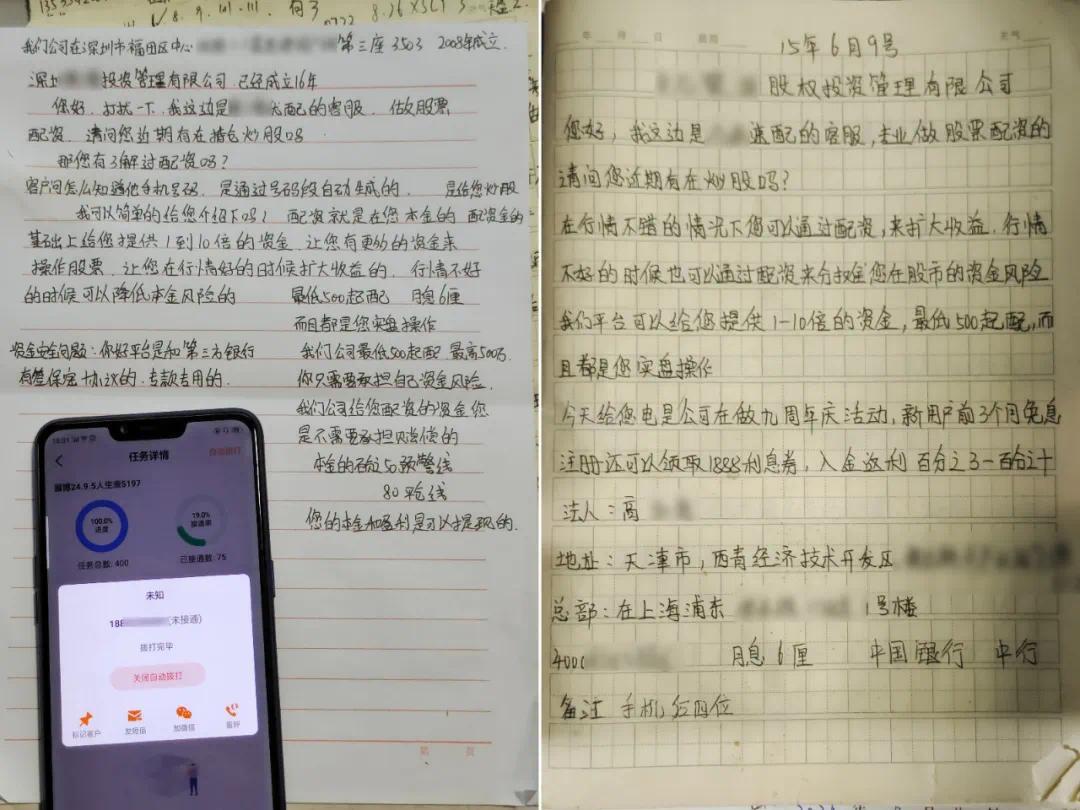 我们公司在深圳市福田区中心 第三座3503 2008年成立.
深圳 投资管理有限公司.已经成立16年
您好.打扰一下.我这边是 配的客服. 做股票
配资. 请问您近期有在 炒股吗
那您有了解过配资吗?
客户问怎么知道他手机号码. 是通过号码段自动生成的. 是给您炒股
我可以简单的给您介绍下吗? 配资就是在您本金的 配资金的
基础上给您提供1到10倍的资金.让您有更多的资金来
操作股票.让您在行情好的时候扩大收益的. 行情不好
的时候可以降低本金风险的 最低500起配 月息6厘
而且都是您实盘操作
资金安全问题:你好平台是和第三方银行 我们公司最低500起配 最高500万.
有签保密协议的.专款专用的. 你只需要承担自己资金风险.
我们公司给您配资的资金您
是不需要承担赔偿的
本金的 50预警线
80平仓线
您的本金和盈利是可以提现的.
任务详情
自动拨打
淄博24.9.5人生录5197
100.0%
进度
19.0%
接通率
任务总数: 400
已接通数: 75
未知
188 (未接通)
拨打完毕
关闭自动拨打
标记客户 发短信 加微信
第 页
15年6月9号
股权投资管理有限公司
您好,我这边是 速配的客服,专业做股票配资的
请问您近期有在炒股吗?
在行情不错的情况下您可以通过配资,来扩大收益.行情
不好的时候也可以通过配资来分担您在股市的资金风险
我们平台可以给您提供1-10倍的资金,最低500起配,而
且都是您实盘操作
今天给您电是公司在做九周年庆活动,新用户前3个月免息
注册还可以领取1888利息券,入金返利 百分之3-百分之十
法人:高
地址:天津市,西青经济技术开发区
总部:在上海浦东 1号楼
400 月息6厘 中国银行 中行
备注 手机后四位